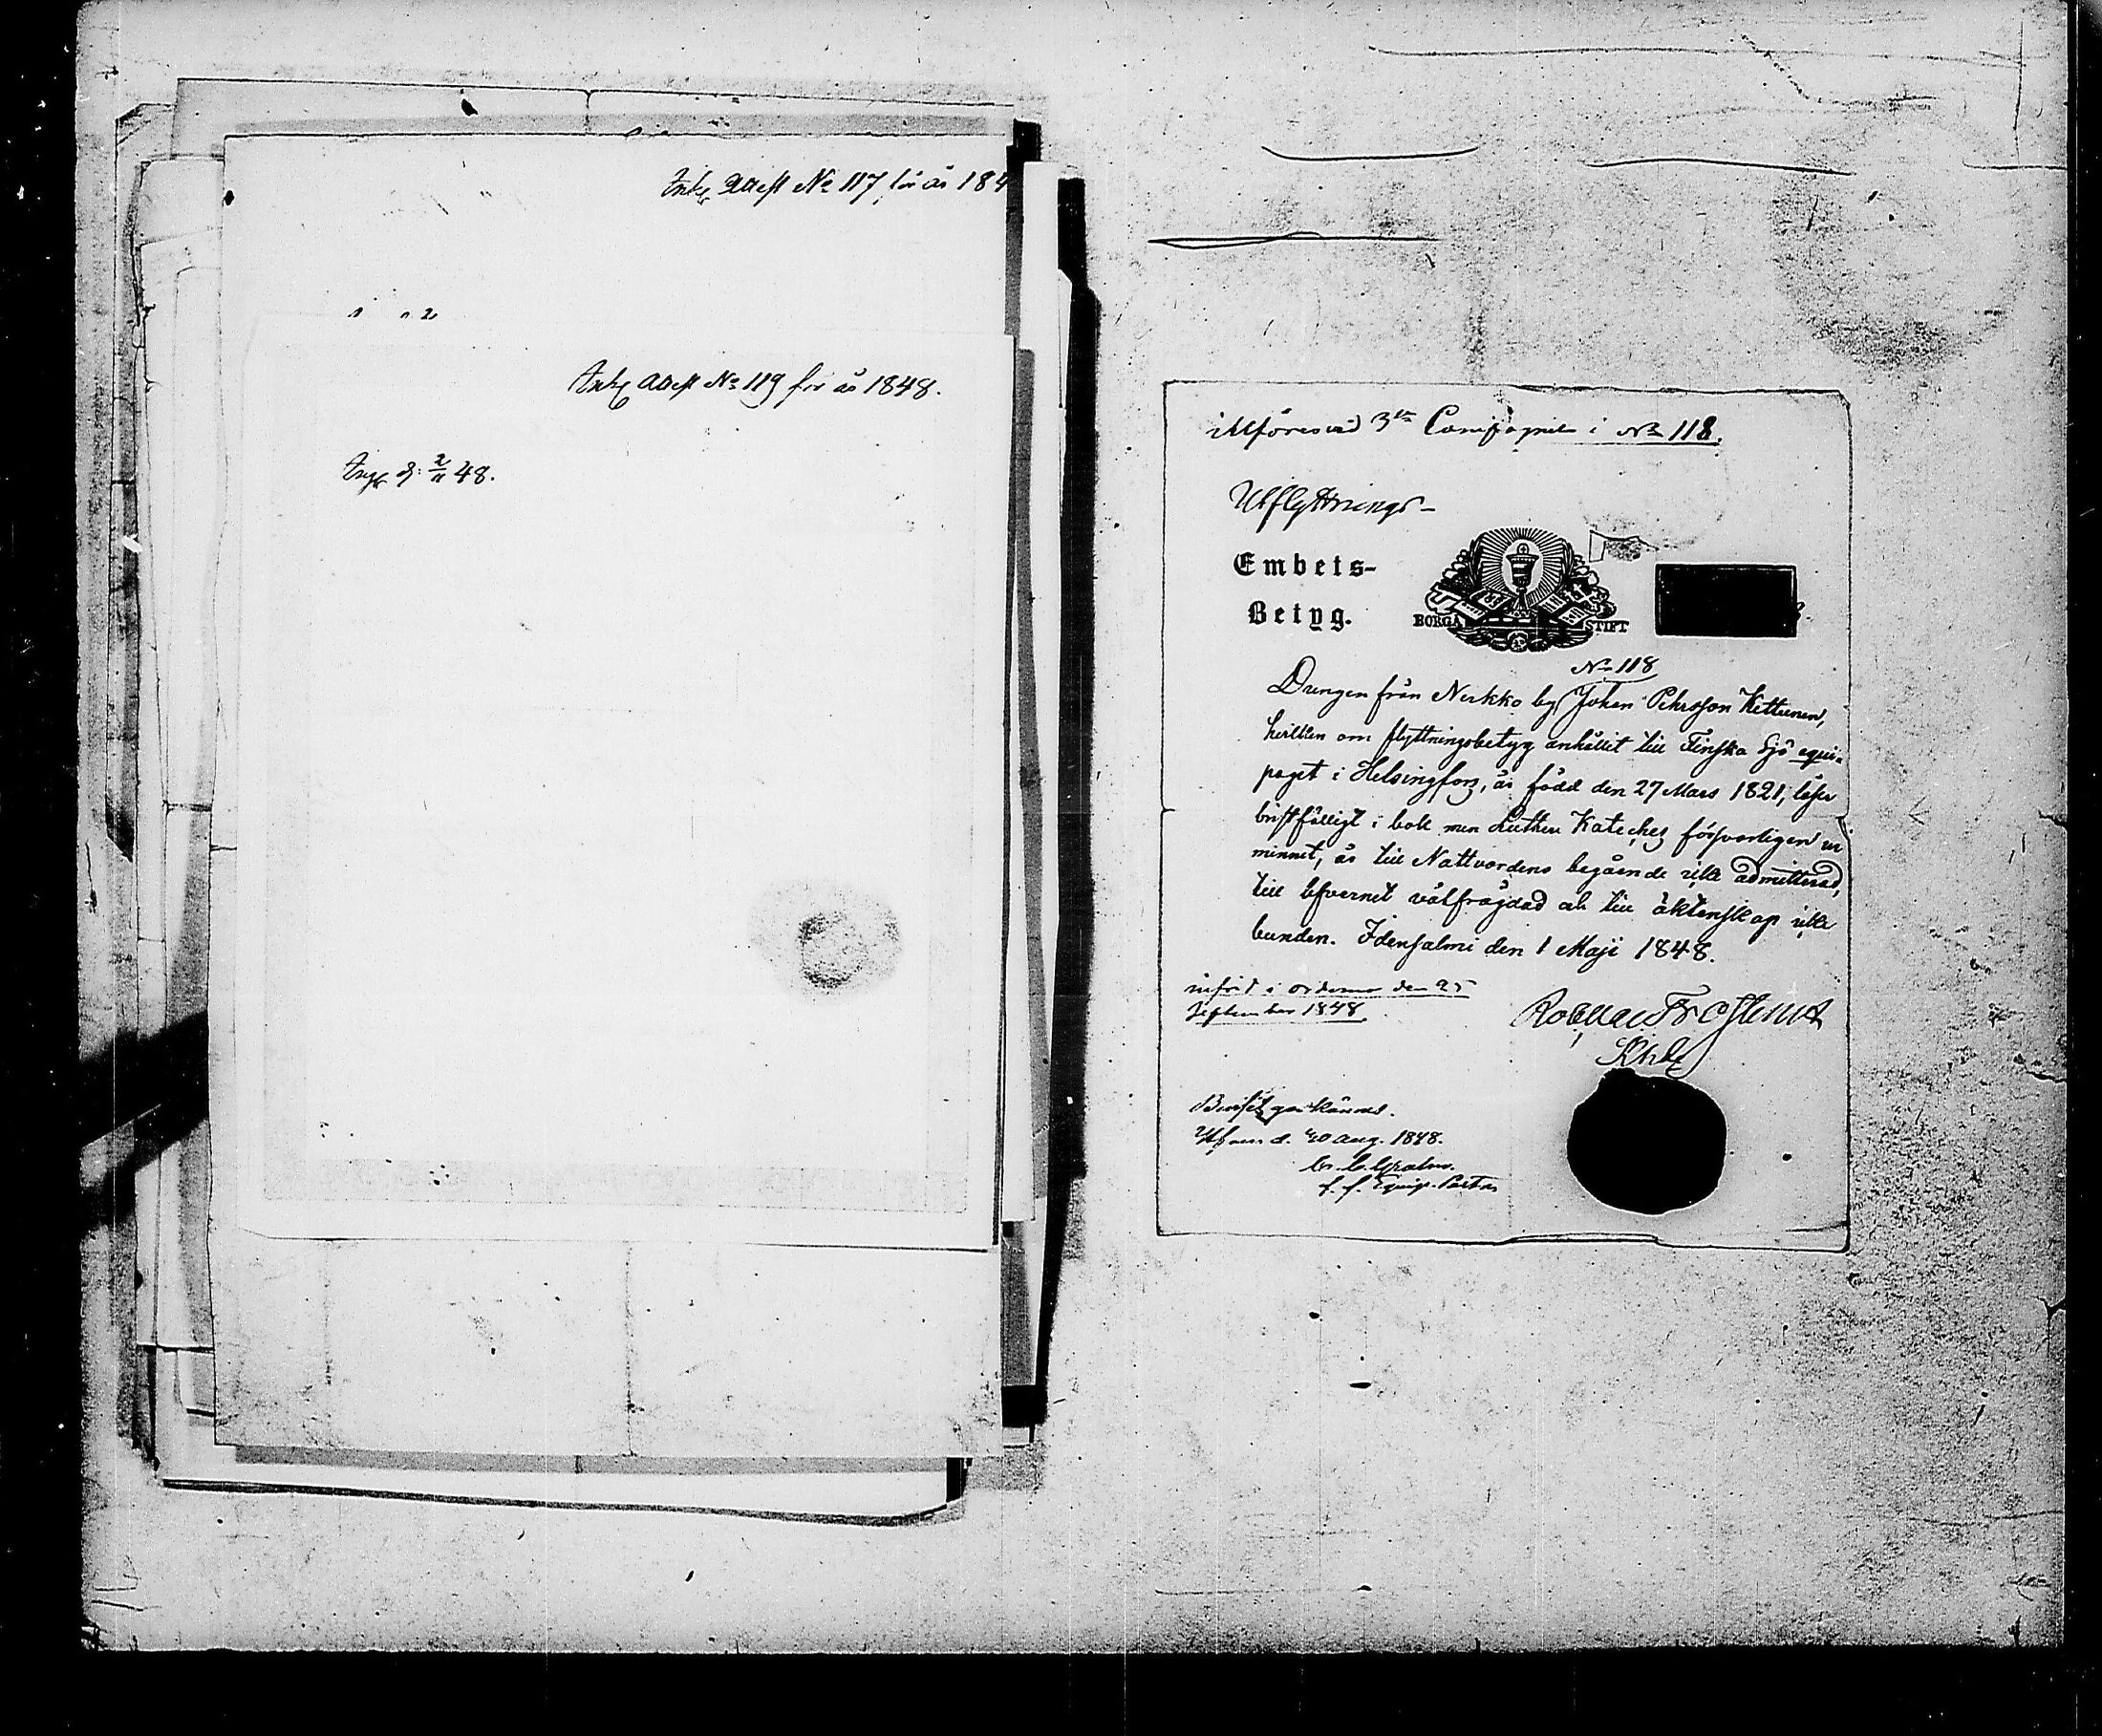 Attest № 117, för år 184
Attest № 119 för år 1848.
d: 2/11 48.
införes vid 3dje Compagniet i № 118.
Utflyttnings-
Embets-
Betyg.
BORGÅ STIFT
№ 118
Drängen från Nerkko by, Johan Pehrsson Kettunen,
hvilken om flyttningsbetyg anhållit till Finska Sjö equi-
paget i Helsingfors, är född den 27 Mars 1821, läser
bristfälligt i bok men Lutheri Kateches försvarligen ur
minnet, är till Nattvardens begående icke admitterad,
till lefvernet välfrägdad och till äktenskap icke
bunden. Idensalmi den 1 Maji 1848.
införd i orderna den 25
September 1848.
Frosterus
H:fors d. 20 Aug. 1848.
f. f. Equip. Pastor